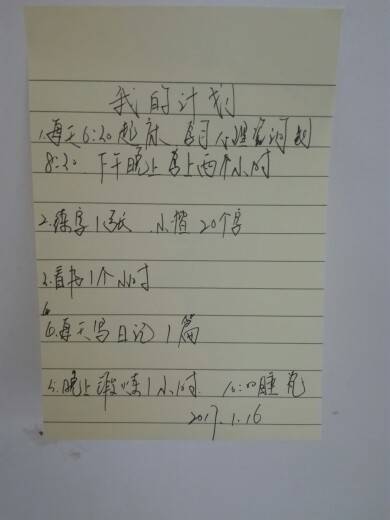 我的计划
1.每天6:30起床、学习
8:30. 下午晚上 上两个小时
2.练字1张 小楷20个字
3.看书1个小时
4.每天写日记1篇
5.晚上锻炼1小时. 10:00睡觉
2017.1.16